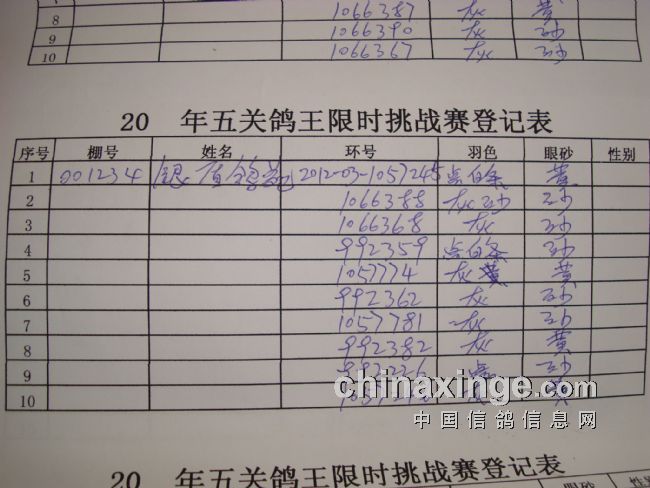 8 1066387 灰 黄
9 1066390 灰 砂
10 1066367 灰 砂
20 年五关鸽王限时挑战赛登记表
序号 棚号 姓名 环号 羽色 眼砂 性别
1 001234 银 鸽 2012-03-1057245 白条 黄
2 1066388 灰 砂
3 1066368 灰 砂
4 992359 白条 砂
5 1057774 灰 黄
6 992362 灰 砂
7 1057781 灰 砂
8 992382 灰 黄
9 砂
10
chinaxinge.com
中国信鸽信息网
20 年五关鸽王限时挑战赛登记表